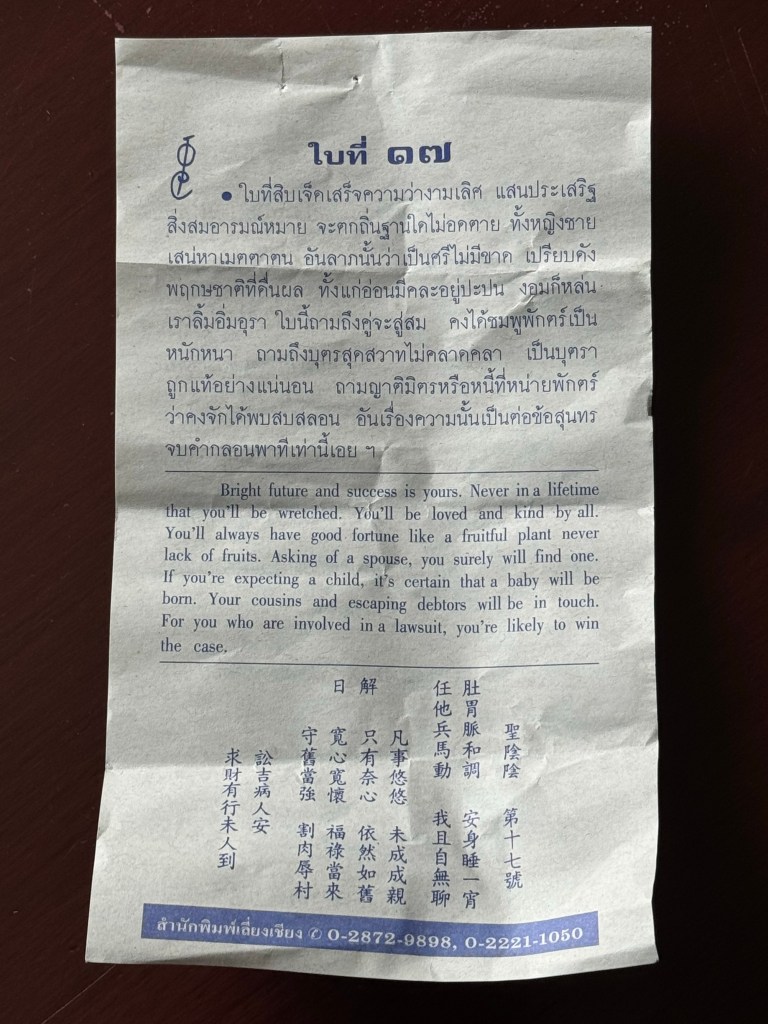 ใบที่ ๑๗
• ใบที่สิบเจ็ดเสร็จความว่างามเลิศ แสนประเสริฐ
สิ่งสมอารมณ์หมาย จะตกถิ่นฐานใดไม่อดตาย ทั้งหญิงชาย
เสน่หาเมตตาตน อันลาภนั้นว่าเป็นศรีไม่มีขาด เปรียบดัง
พฤกษชาติที่ดื่นผล ทั้งแก่อ่อนมีคละอยู่ปะปน งอมก็หล่น
เราลิ้มอิ่มอุรา ใบนี้ถามถึงคู่จะสู่สม คงได้ชมพูพักตร์เป็น
หนักหนา ถามถึงบุตรสุดสวาทไม่คลาดคลา เป็นบุตรา
ถูกแท้อย่างแน่นอน ถามญาติมิตรหรือหนี้ที่หน่ายพักตร์
ว่าคงจักได้พบสบสลอน อันเรื่องความนั้นเป็นต่อข้อสุนทร
จบคำกลอนพาทีเท่านี้เอย ฯ
Bright future and success is yours. Never in a lifetime
that you'll be wretched. You'll be loved and kind by all.
You'll always have good fortune like a fruitful plant never
lack of fruits. Asking of a spouse, you surely will find one.
If you're expecting a child, it's certain that a baby will be
born. Your cousins and escaping debtors will be in touch.
For you who are involved in a lawsuit, you're likely to win
the case.
聖陰陰 第十七號
肚胃脈和調 安身睡一宵
任他兵馬動 我且自無聊
解日
凡事悠悠 未成成親
只有奈心 依然如舊
寬心寬懷 福祿當來
守舊當強 割肉辱村
訟吉病人安
求財有行未人到
สำนักพิมพ์เลี่ยงเซียง ✆ 0-2872-9898, 0-2221-1050